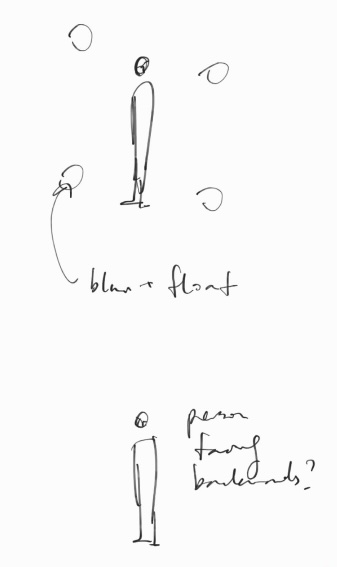 blur + float
person
facing
backwards?